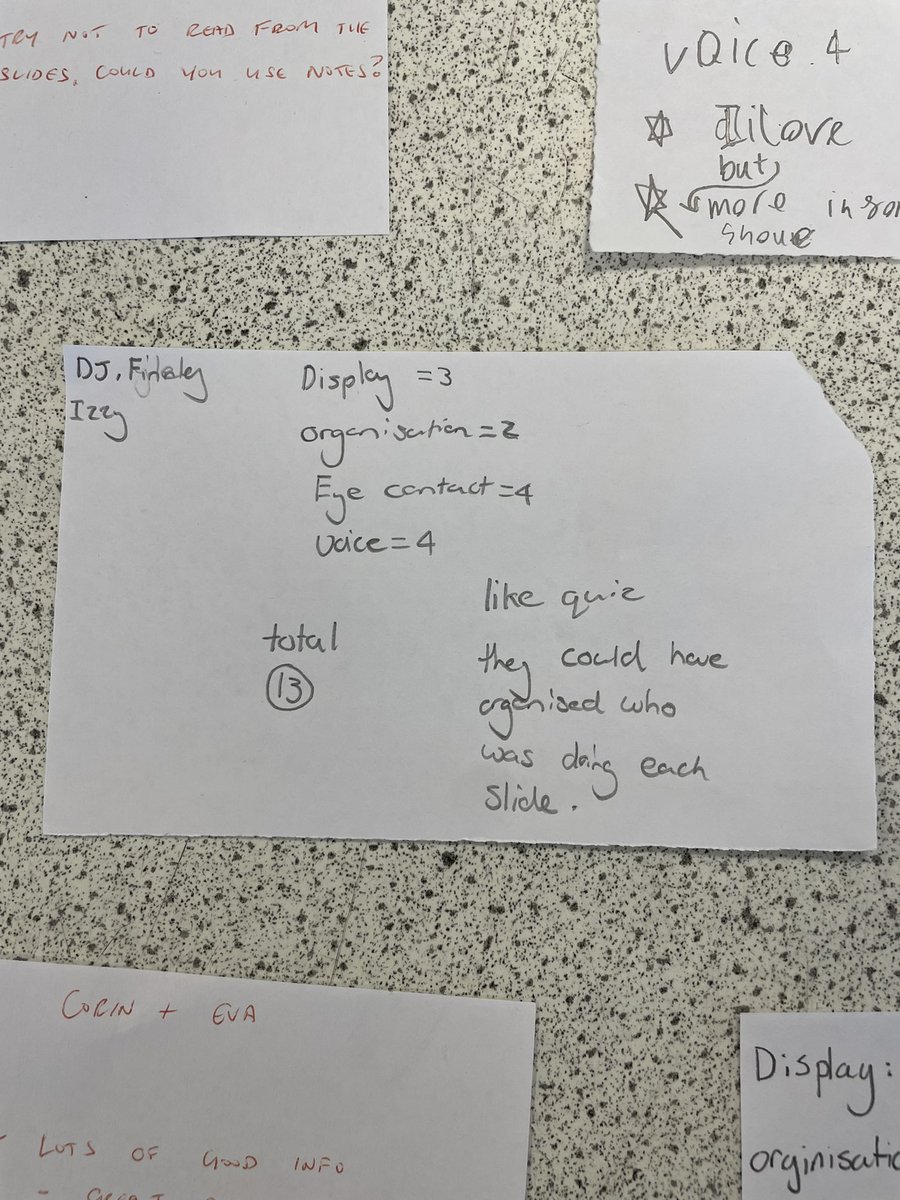 TRY NOT TO READ FROM THE
SLIDES, COULD YOU USE NOTES?
voice.4
I love
but
more
DJ, Finlaley
Izzy
Display =3
organisation=2
Eye contact=4
voice=4
like quiz
they could have
organised who
was doing each
slide.
total
13
CORIN + EVA
LOTS OF GOOD INFO
Display: